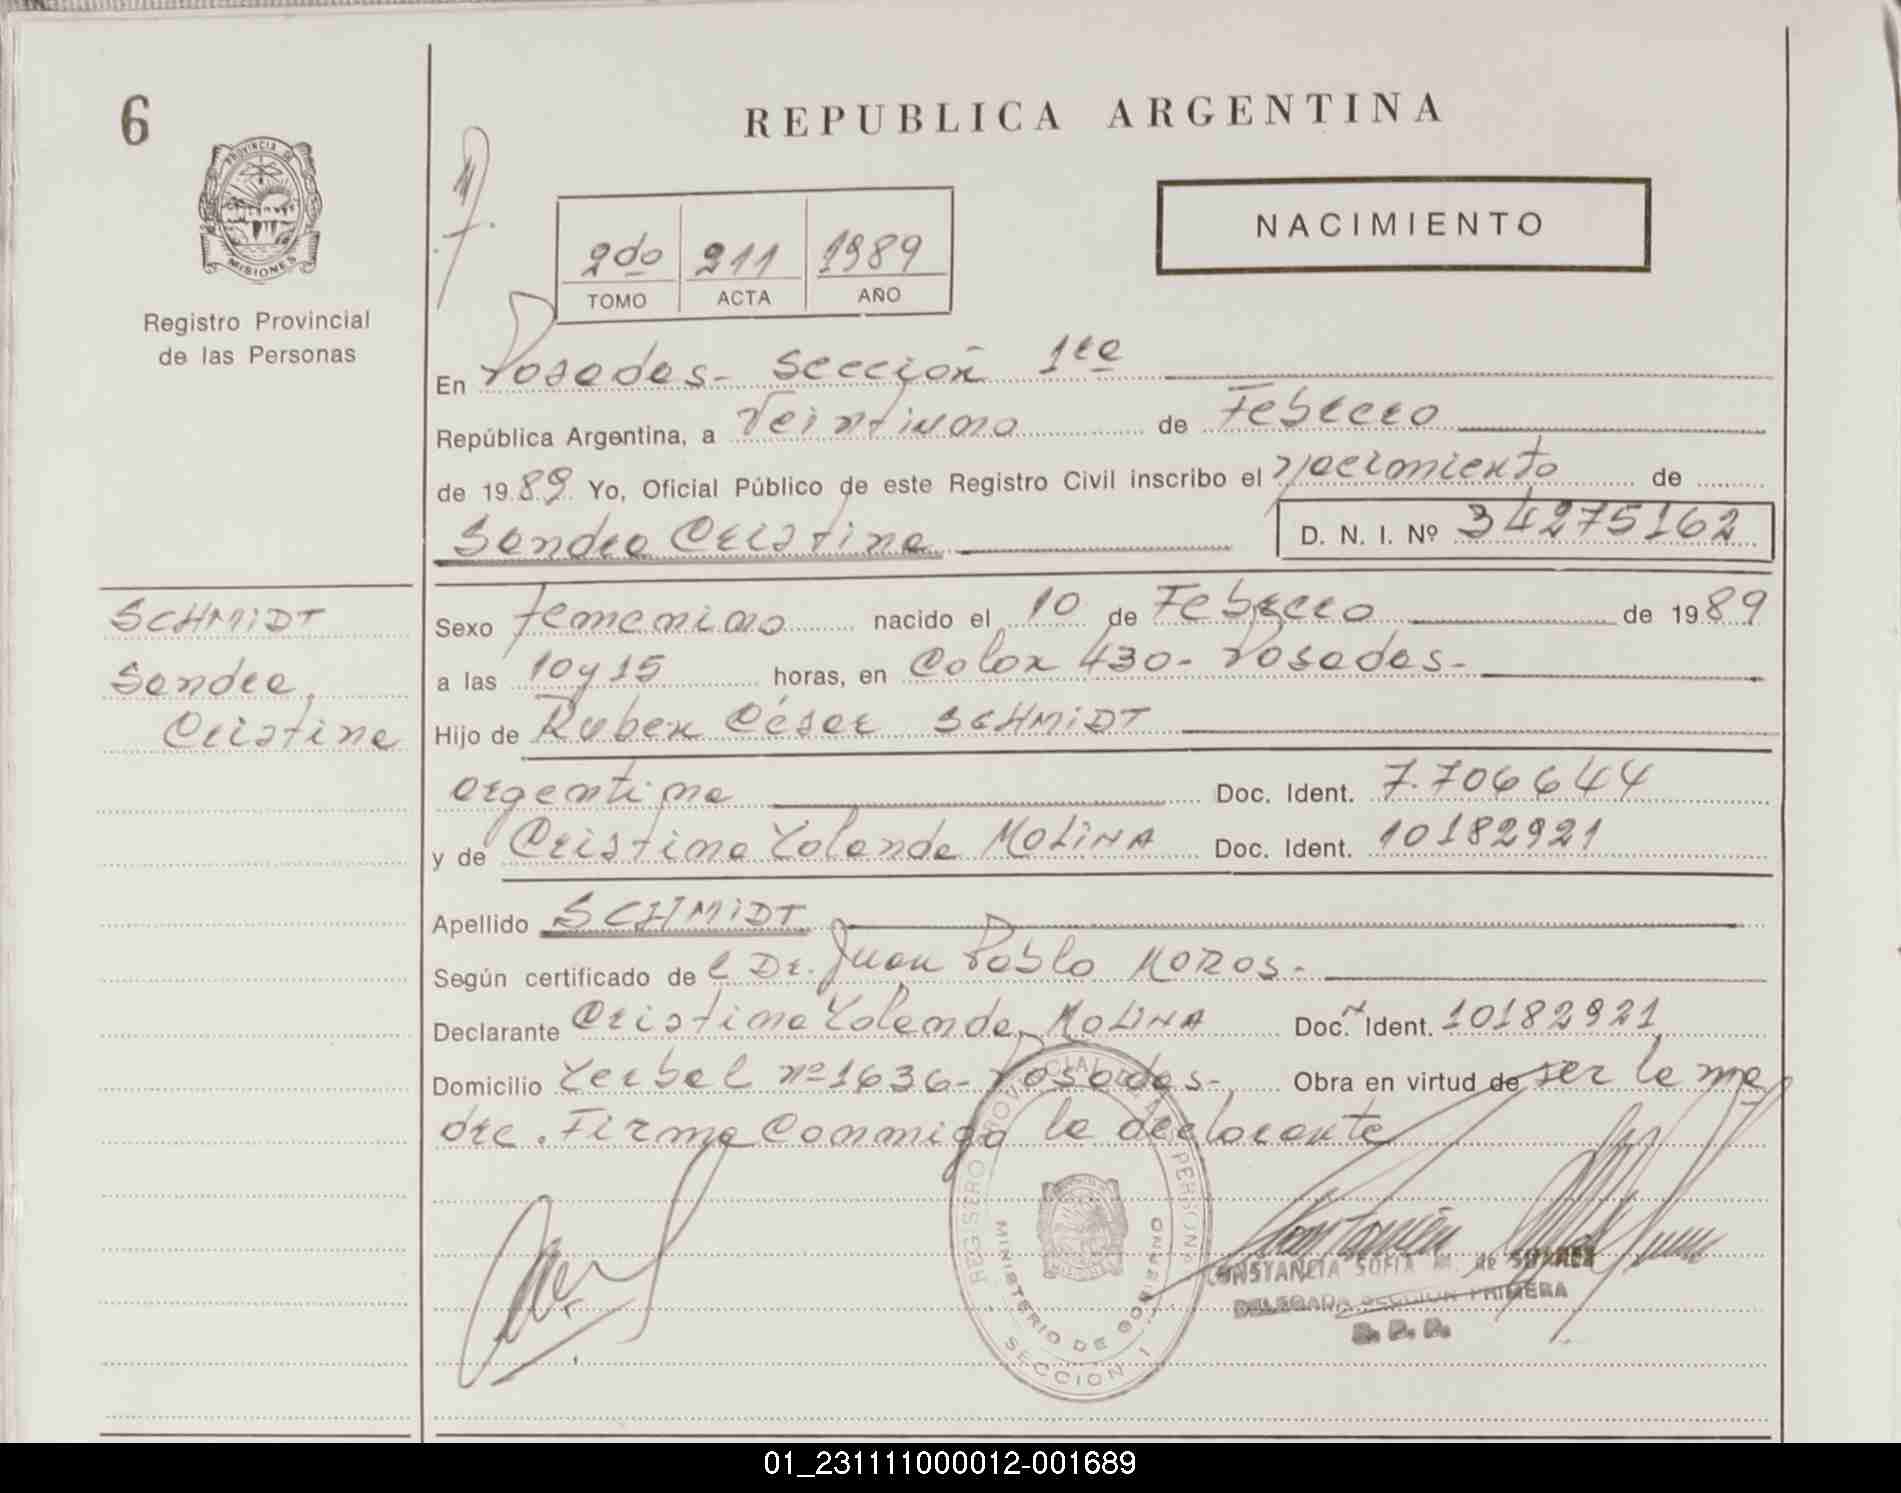 6
REPUBLICA ARGENTINA
PROVINCIA DE
MISIONES
Registro Provincial
de las Personas
2do 211 1989
TOMO ACTA AÑO
NACIMIENTO
En Posadas- Sección 1ra
República Argentina, a Veintiuno de Febrero
de 1989 Yo, Oficial Público de este Registro Civil inscribo el nacimiento de
Sandra Cristina D. N. I. Nº 34275162
SCHMIDT
Sandra
Cristina
Sexo femenino nacido el 10 de Febrero de 1989
a las 10 y 15 horas, en Colon 430- Posadas-
Hijo de Ruben César SCHMIDT
argentina Doc. Ident. 7.706644
y de Cristina Yolanda MOLINA Doc. Ident. 10182921
Apellido SCHMIDT
Según certificado de l Dr. Juan Pablo MOROS-
Declarante Cristina Yolanda MOLINA Doc. Ident. 10182921
Domicilio Yerbal nº 1636- Posadas- Obra en virtud de ser la ma
dre. Firma Conmigo la declarante
REGISTRO PROVINCIAL DE LAS PERSONAS
MINISTERIO DE GOBIERNO
SECCION 1
CONSTANCIA SOFIA M. de SUAREZ
DELEGADA SECCION PRIMERA
R. P. P.
01_231111000012-001689